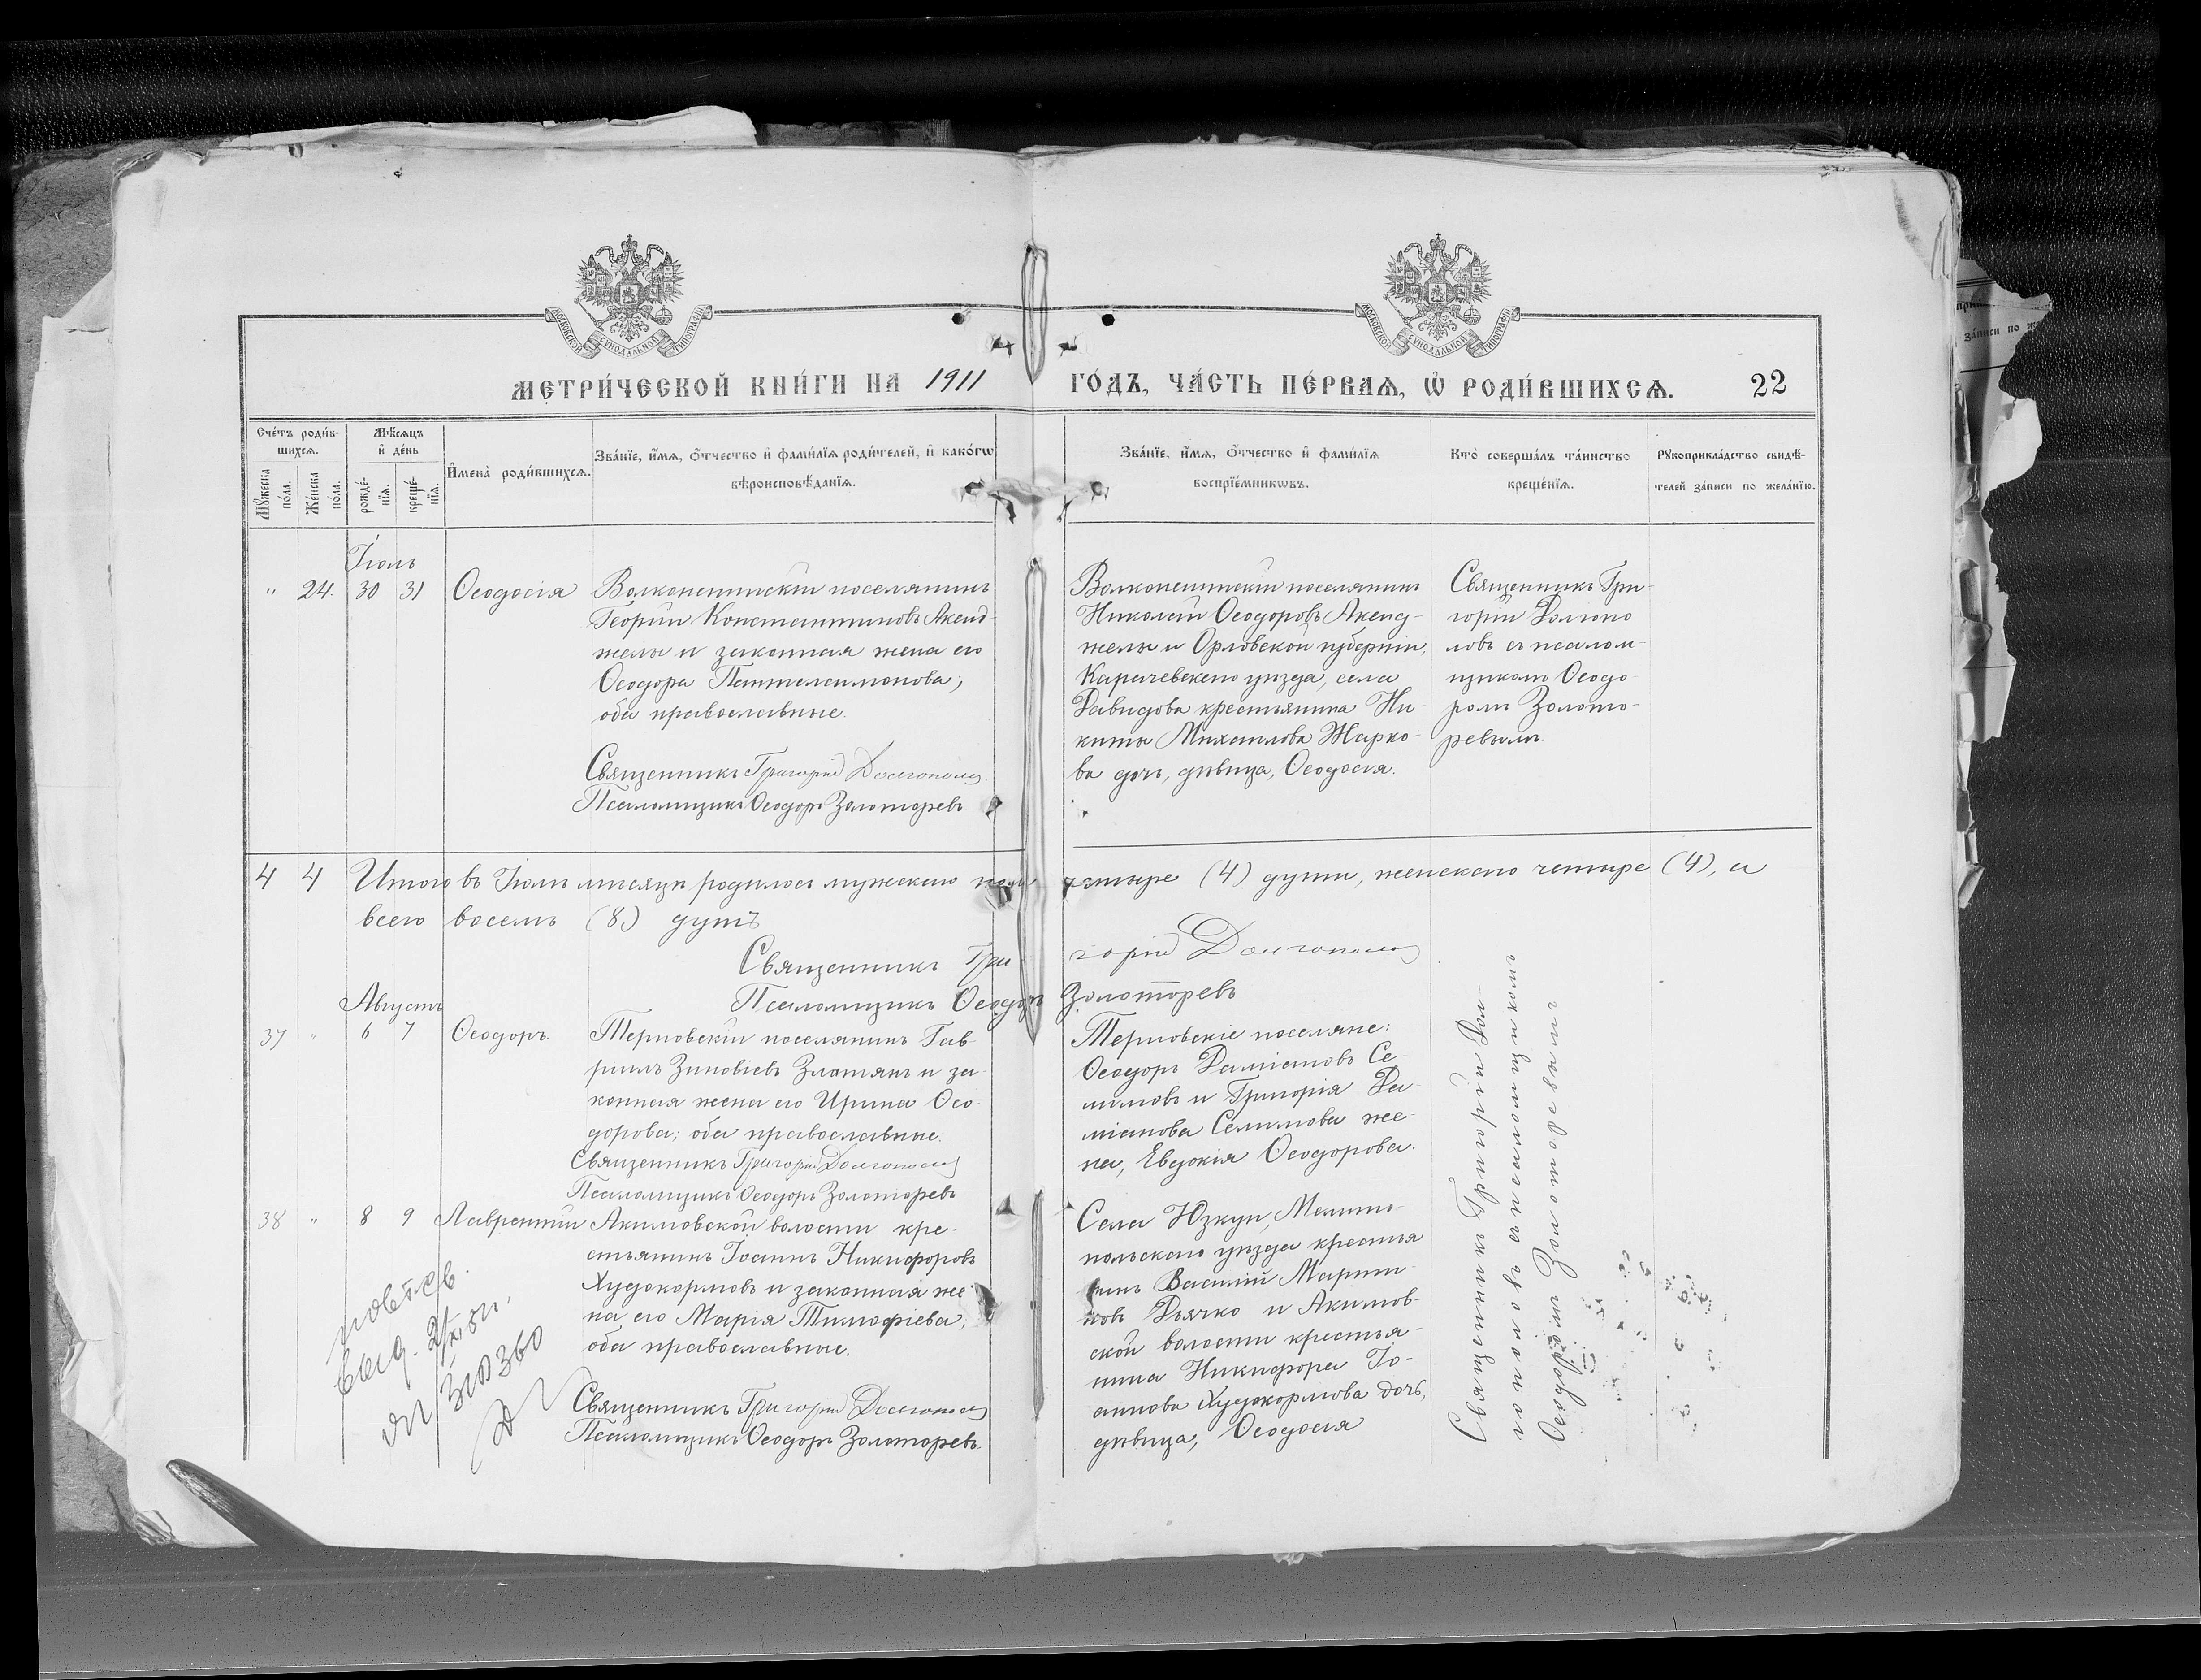 МОСКОВСКОЙ СѴНОДАЛЬНОЙ ТИПОГРАФІИ
МОСКОВСКОЙ СѴНОДАЛЬНОЙ ТИПОГРАФІИ
МЕТРИ́ЧЕСКОЙ КНИ́ГИ НА 1911 ГО́ДЪ, ЧА́СТЬ ПЕ́РВАѦ, Ѡ҆ РОДИ́ВШИХСѦ. 22
Сче́тъ роди́в-
шихсѧ.
Мѣ́сѧцъ
и҆ де́нь
Мꙋ́жеска
по́ла.
Же́нска
пола.
рожде́-
нїѧ.
креще́-
нїѧ.
И҆мена̀ роди́вшихсѧ.
Зва́нїе, и҆́мѧ, ѻ҆́тчество и҆ фами́лїѧ роди́телей, и҆ како́гѡ
вѣроисповѣ́данїѧ.
Зва́нїе, и҆́мѧ, ѻ҆́тчество и҆ фами́лїѧ
воспрїе́мникѡвъ.
Кто̀ соверша́лъ та́инство
креще́нїѧ.
Рꙋкоприкла́дство свидѣ́-
телей за́писи по жела́нїю.
Іюль
" 24. 30 31 Ѳеодосія
Волконештскій поселянинъ
Георгій Константиновъ Акенд-
желы и законная жена его
Ѳеодора Пантелеимонова,
оба православные.
Священникъ Григорій Долгополов
Псаломщикъ Ѳеодоръ Золоторевъ
Волконештскій поселянинъ
Николай Ѳеодоровъ Акенд-
желы и Орловской губерніи,
Карачевскаго уѣзда, села
Давидова крестьянина Ни-
киты Михаилова Жарко-
ва дочь, дѣвица, Ѳеодосія.
Священникъ Гри-
горій Долгопо
ловъ съ псалом-
щикомъ Ѳеодо-
ромъ Золото-
ревымъ.
4 4 Итого въ Іюлѣ мѣсяцѣ родилось мужескаго пола четыре (4) души, женскаго четыре (4), а
всего восемь (8) душъ
Священникъ Григорій Долгополов
Псаломщикъ Ѳеодоръ Золоторевъ
Августъ
37 " 6 7 Ѳеодоръ.
Терновскій поселянинъ Гав-
риилъ Зиновіевъ Златянъ и за-
конная жена его Ирина Ѳео-
дорова; оба православные.
Священникъ Григорій Долгополов
Псаломщикъ Ѳеодоръ Золоторевъ
Терновскіе поселяне:
Ѳеодоръ Даміановъ Се-
лимовъ и Григорія Да-
міанова Селимова же-
на, Евдокія Ѳеодорова.
38 " 8 9 Лаврентій
Акимовской волости кре-
стьянинъ Іоаннъ Никифоровъ
Худокормовъ и законная же-
на его Марія Тимофіева,
оба православные.
Священникъ Григорій Долгополов
Псаломщикъ Ѳеодоръ Золоторевъ.
Села Юзкуи, Мелито-
польскаго уѣзда крестья
нинъ Василій Марти-
новъ Дьячко и Акимов-
ской волости крестья-
нина Никифора Іо-
аннова Худокормова дочь,
дѣвица, Ѳеодосія
Священникъ Григорій Дол-
гополовъ съ псаломщикомъ
Ѳеодоромъ Золоторевымъ
повт. св.
выд.
360